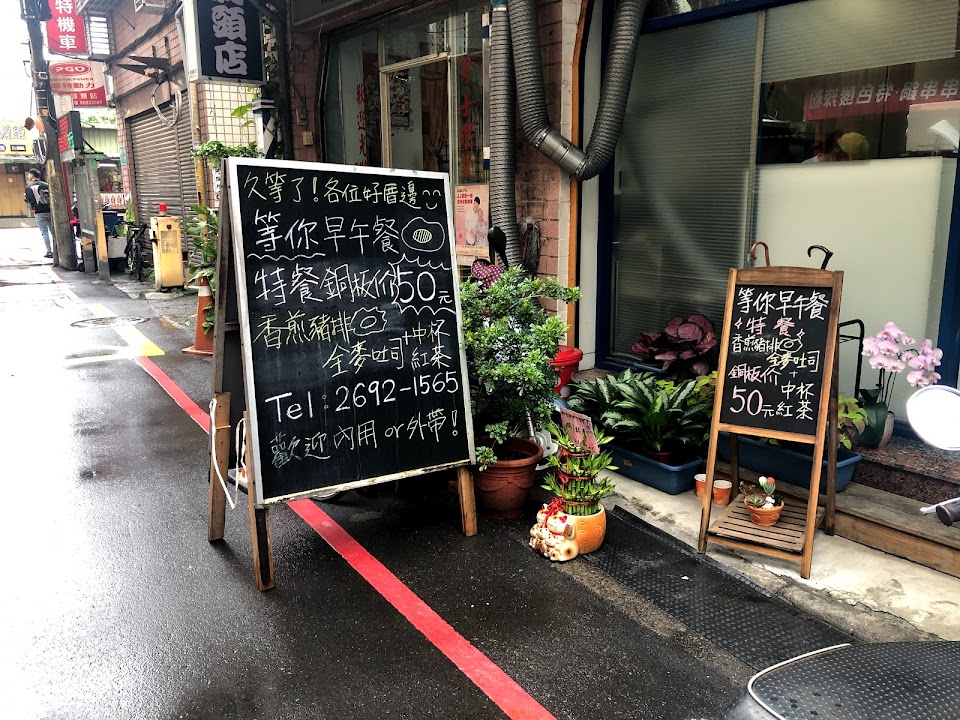 特機車
PGO
頭店
久等了！各位好厝邊
等你早午餐
特餐銅板价50元
香煎豬排
全麥吐司+中杯紅茶
Tel：2692-1565
歡迎內用or外帶！
等你早午餐
特餐
香煎豬排
全麥吐司
+
銅板价 中杯
50元紅茶